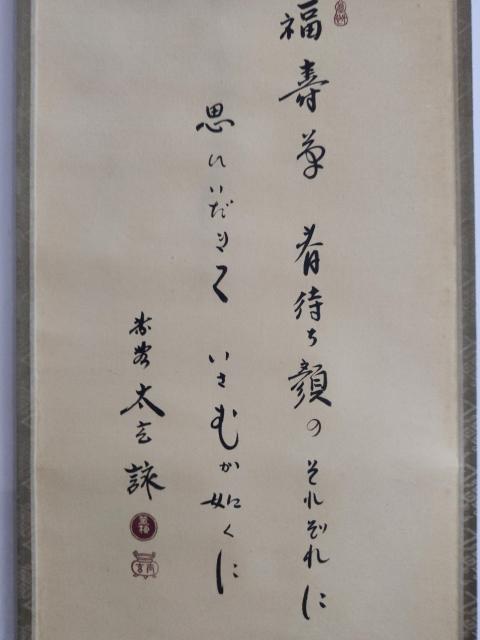 福寿草 春待ち顔の それぞれに
思ひいだきて いさむか如くに
太玄 詠